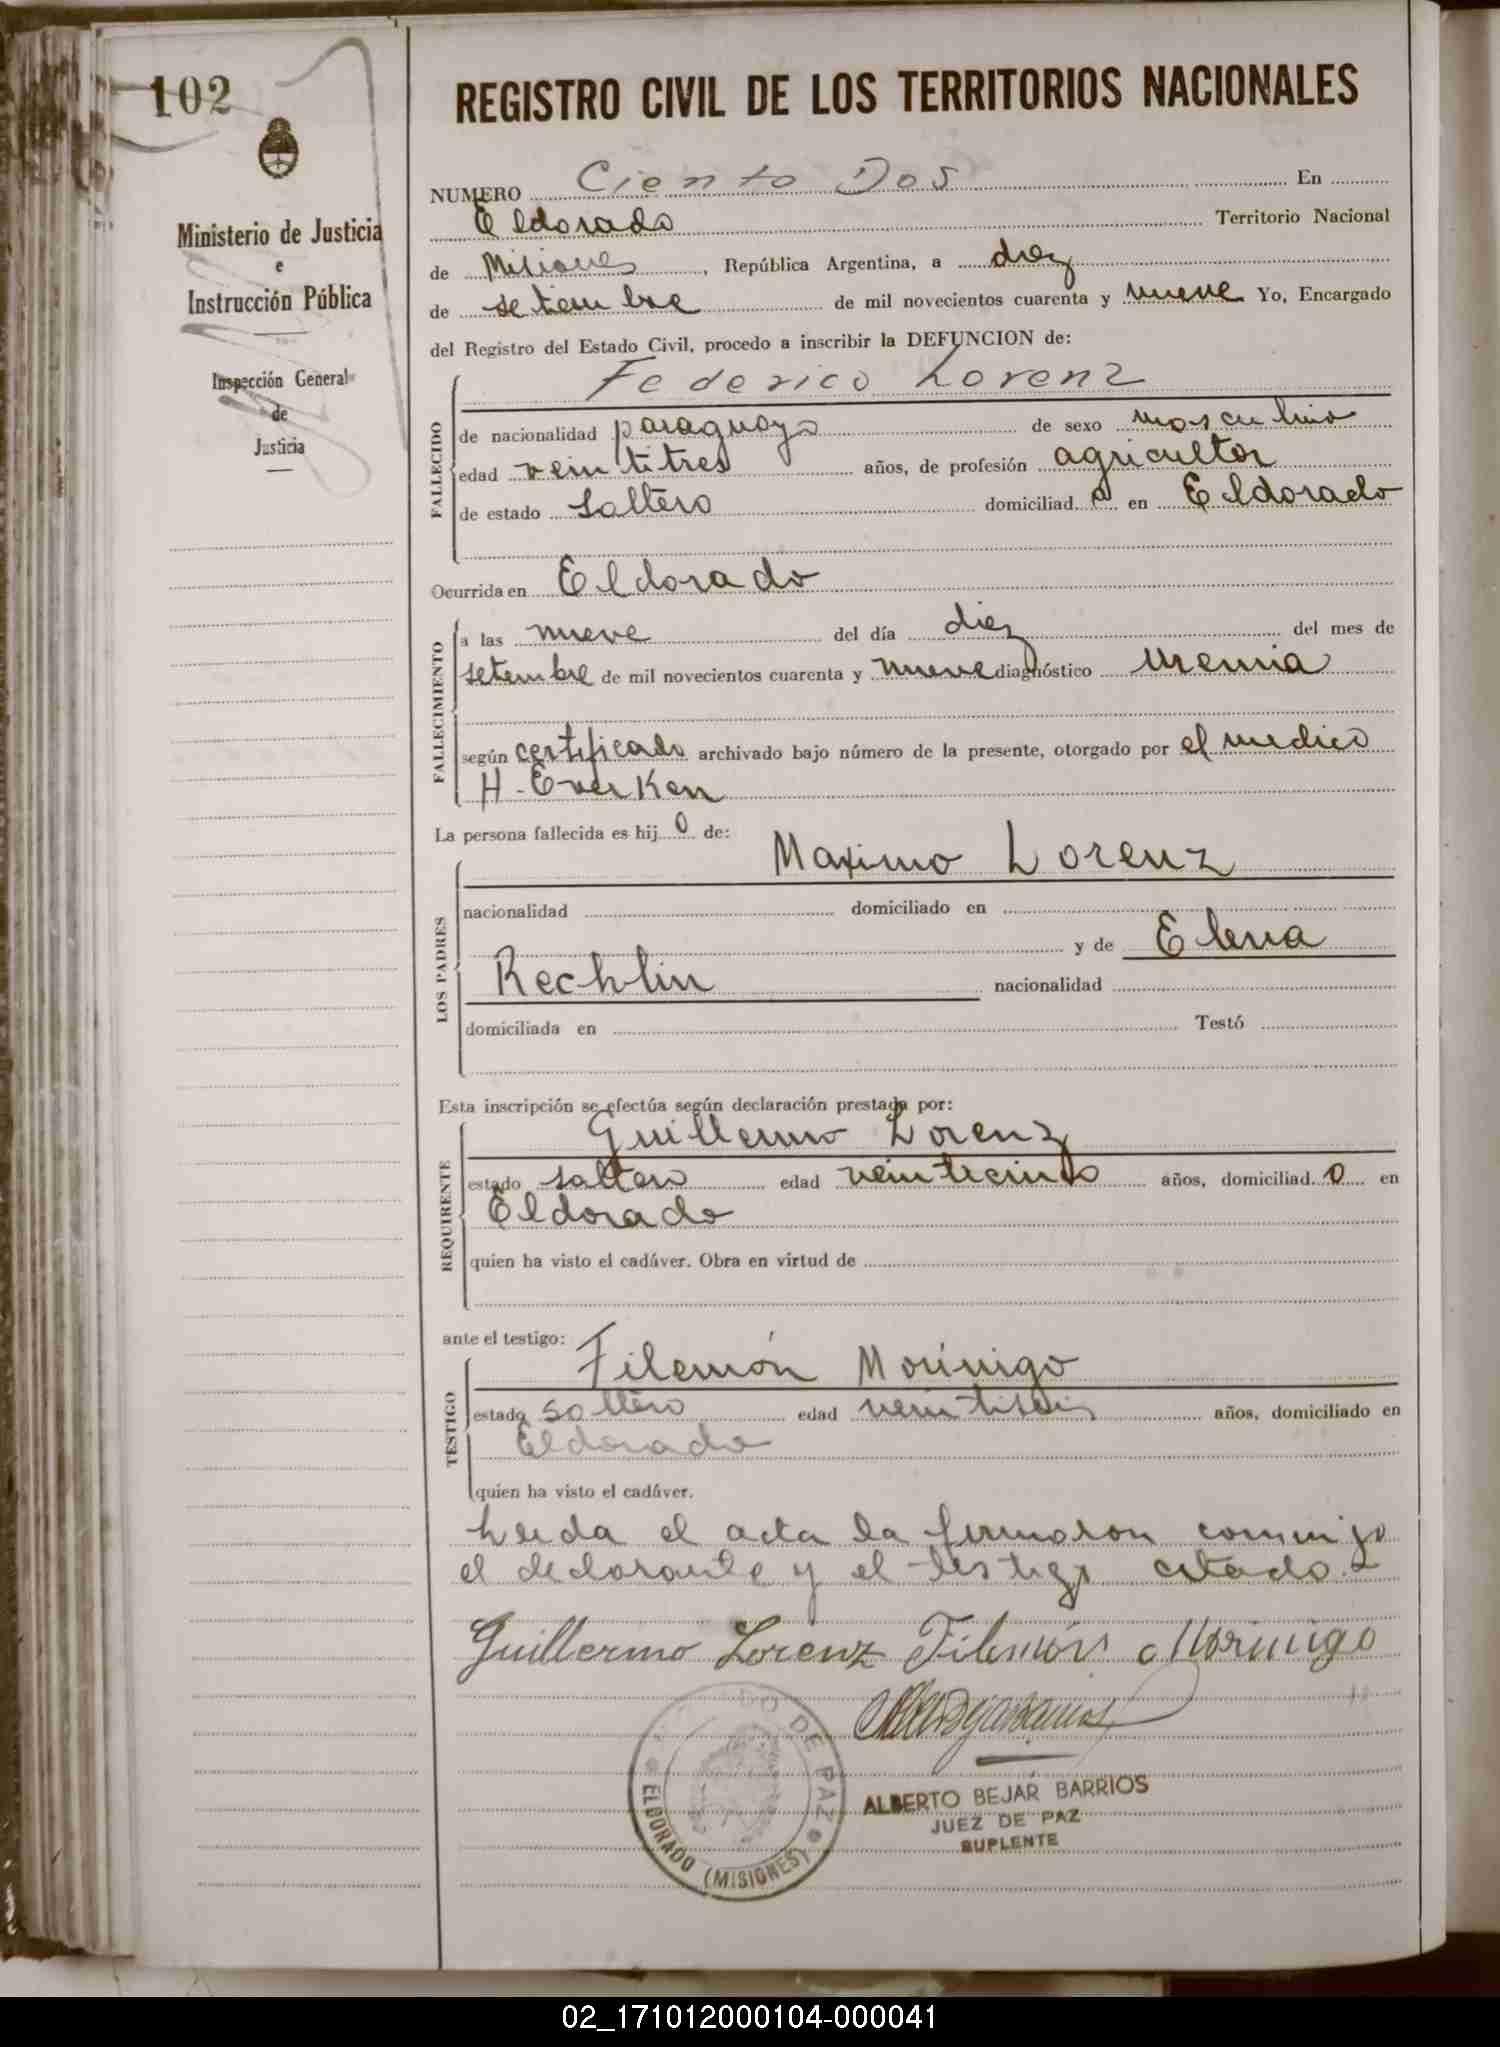 102
Ministerio de Justicia
e
Instrucción Pública
Inspección General
de
Justicia
REGISTRO CIVIL DE LOS TERRITORIOS NACIONALES
NUMERO Ciento Dos En
Eldorado Territorio Nacional
de Misiones, República Argentina, a diez
de setiembre de mil novecientos cuarenta y nueve Yo, Encargado
del Registro del Estado Civil, procedo a inscribir la DEFUNCION de:
Federico Lorenz
FALLECIDO
de nacionalidad paraguaya de sexo masculino
edad veintitres años, de profesión agricultor
de estado soltero domiciliad o en Eldorado
Ocurrida en Eldorado
FALLECIMIENTO
a las nueve del día diez del mes de
setembre de mil novecientos cuarenta y nueve diagnóstico uremia
según certificado archivado bajo número de la presente, otorgado por el medico
H. Everken
La persona fallecida es hij o de:
LOS PADRES
Maximo Lorenz
nacionalidad domiciliado en
y de Elena
Rechlin nacionalidad
domiciliada en Testó
Esta inscripción se efectúa según declaración prestada por:
REQUIRENTE
Guillermo Lorenz
estado soltero edad veinticinco años, domiciliad o en
Eldorado
quien ha visto el cadáver. Obra en virtud de
ante el testigo:
TESTIGO
Filemón Morinigo
estado soltero edad veintiseis años, domiciliado en
Eldorado
quien ha visto el cadáver.
Leida el acta la firmaron conmigo
el declarante y el testigo citado.
Guillermo Lorenz Filemón Morinigo
JUZGADO DE PAZ
ELDORADO (MISIONES)
ALBERTO BEJAR BARRIOS
JUEZ DE PAZ
SUPLENTE
02_171012000104-000041